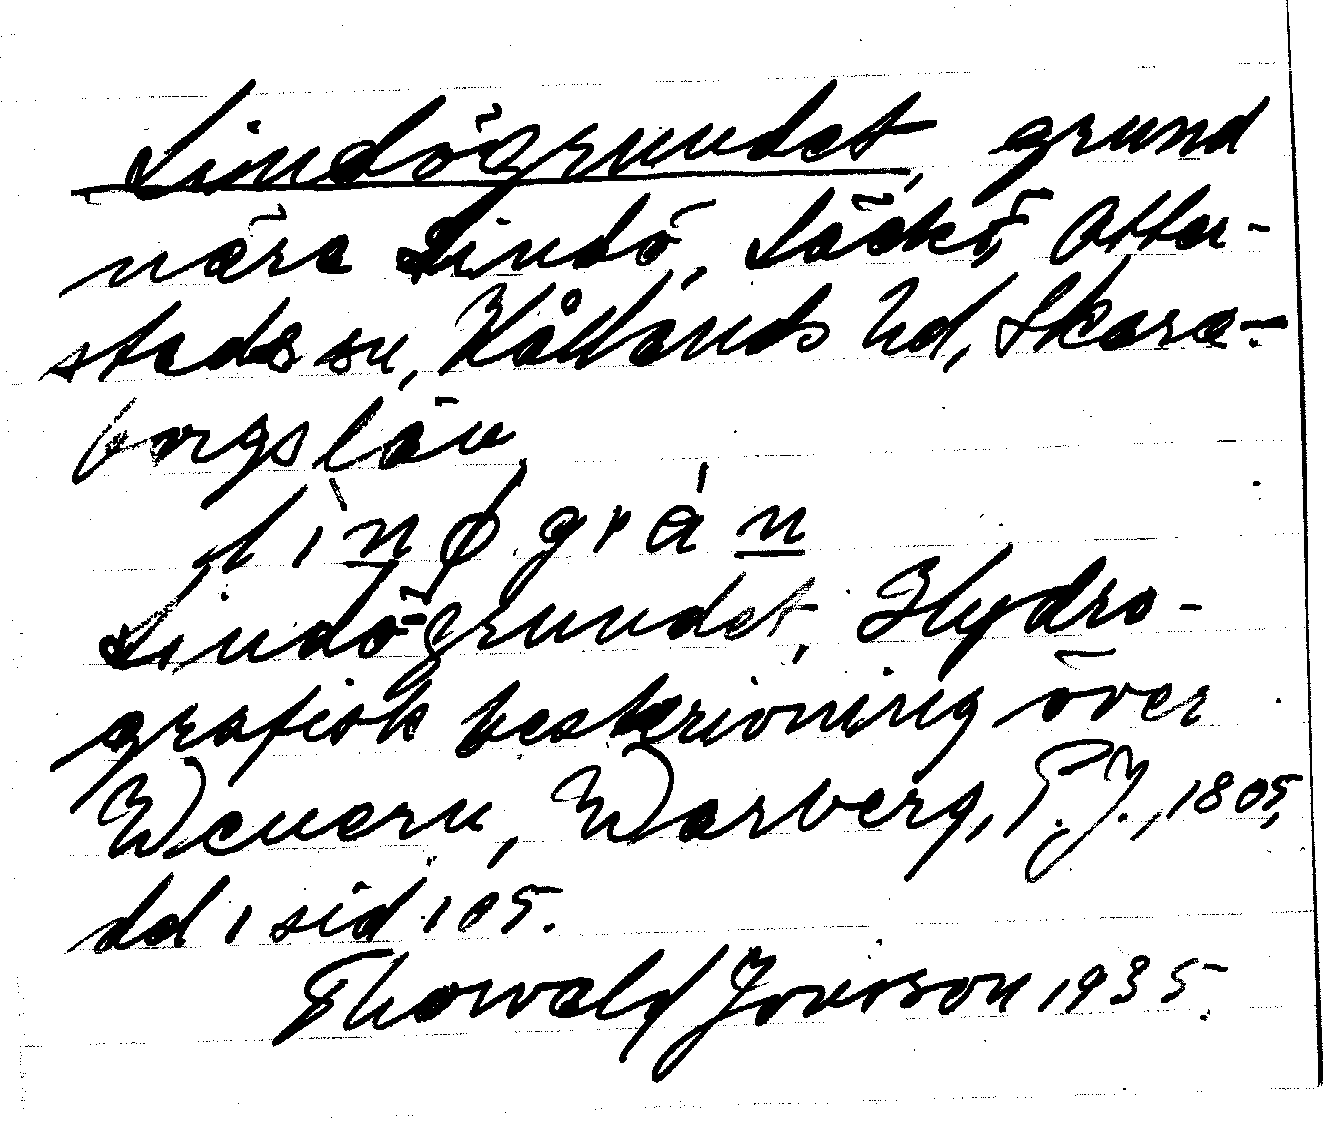 Lindögrundet, grund
nära Lindö, Läckö, Otter-
stads sn, Kållands hd, Skara-
borgs län
Lindögrundet, Hydro-
grafisk beskrivning över
Wenern, Warberg, P.J., 1805,
dd 1 sid 105.
Thorvald Jonsson 1935.